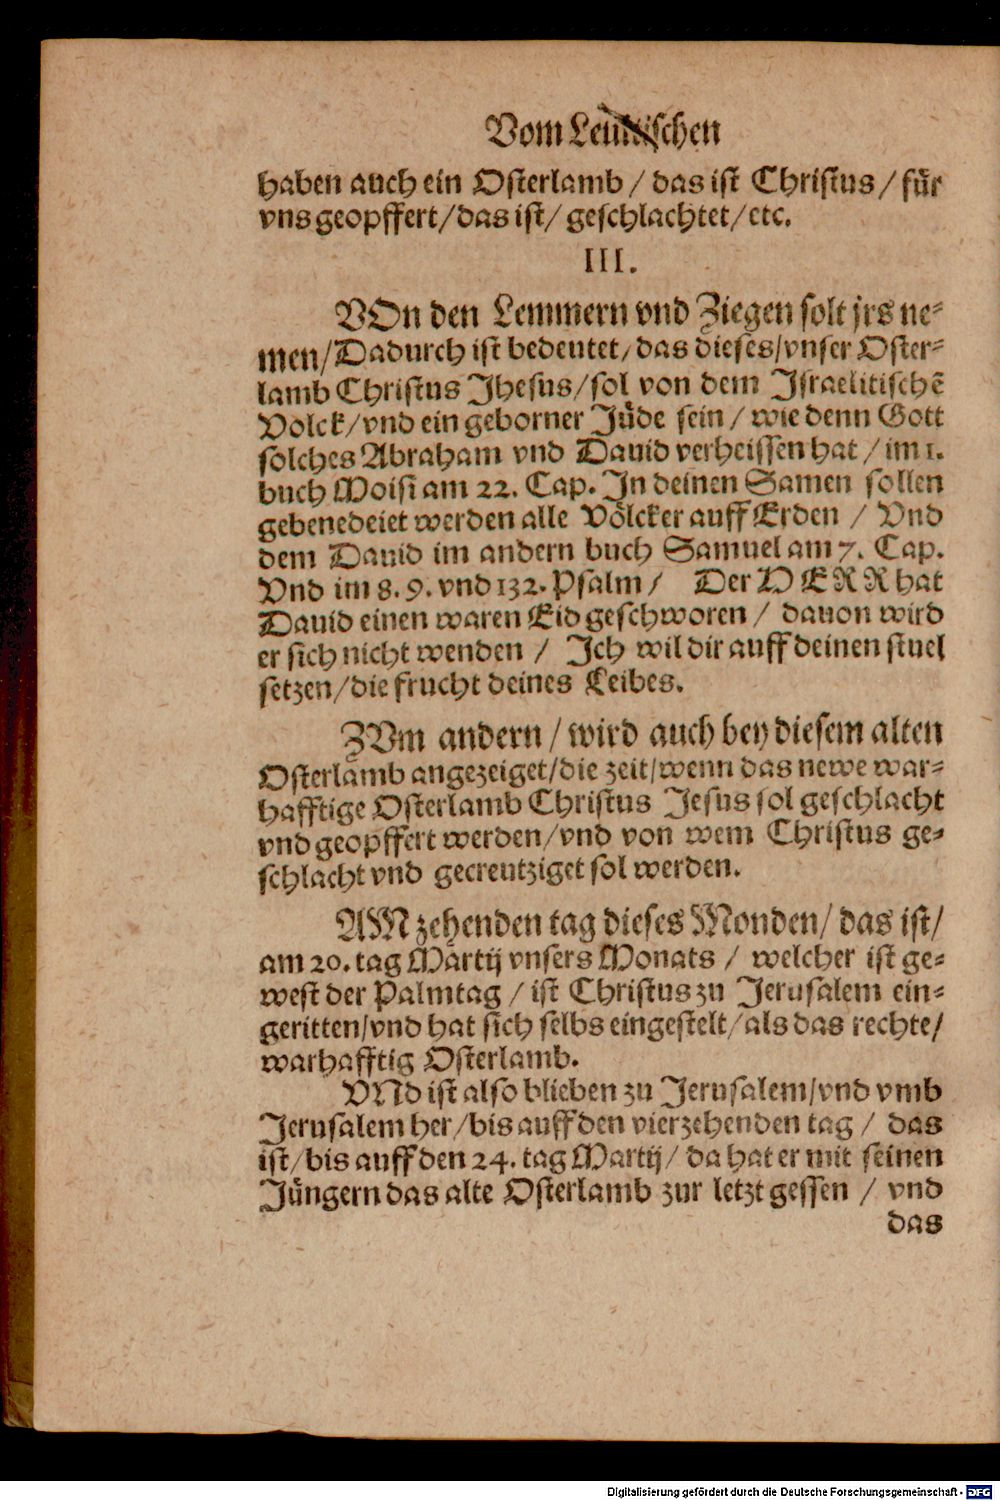 Vom Leuitischen
haben auch ein Osterlamb / das ist Christus / für
vns geopffert/das ist/ geschlachtet/etc.
III.
VOn den Lemmern vnd Ziegen solt jrs ne-
men/Dadurch ist bedeutet/das dieses/vnser Oster-
lamb Christus Jhesus/sol von dem Israelitischẽ
Volck/vnd ein geborner Jüde sein / wie denn Gott
solches Abraham vnd Dauid verheissen hat / im 1.
buch Moisi am 22. Cap. In deinen Samen sollen
gebenedeiet werden alle Völcker auff Erden / Vnd
dem Dauid im andern buch Samuel am 7. Cap.
Vnd im 8. 9. vnd 132. Psalm / Der HERR hat
Dauid einen waren Eid geschworen / dauon wird
er sich nicht wenden / Ich wil dir auff deinen stuel
setzen/die frucht deines Leibes.
ZVm andern / wird auch bey diesem alten
Osterlamb angezeiget/die zeit/wenn das newe war-
hafftige Osterlamb Christus Jesus sol geschlacht
vnd geopffert werden/vnd von wem Christus ge-
schlacht vnd gecreutziget sol werden.
AM zehenden tag dieses Monden/ das ist/
am 20. tag Martij vnsers Monats / welcher ist ge-
west der Palmtag / ist Christus zu Jerusalem ein-
geritten/vnd hat sich selbs eingestelt/als das rechte/
warhafftig Osterlamb.
VNd ist also blieben zu Jerusalem/vnd vmb
Jerusalem her/bis auff den vierzehenden tag / das
ist/bis auff den 24. tag Martij/ da hat er mit seinen
Jüngern das alte Osterlamb zur letzt gessen / vnd
das
Digitalisierung gefördert durch die Deutsche Forschungsgemeinschaft - DFG